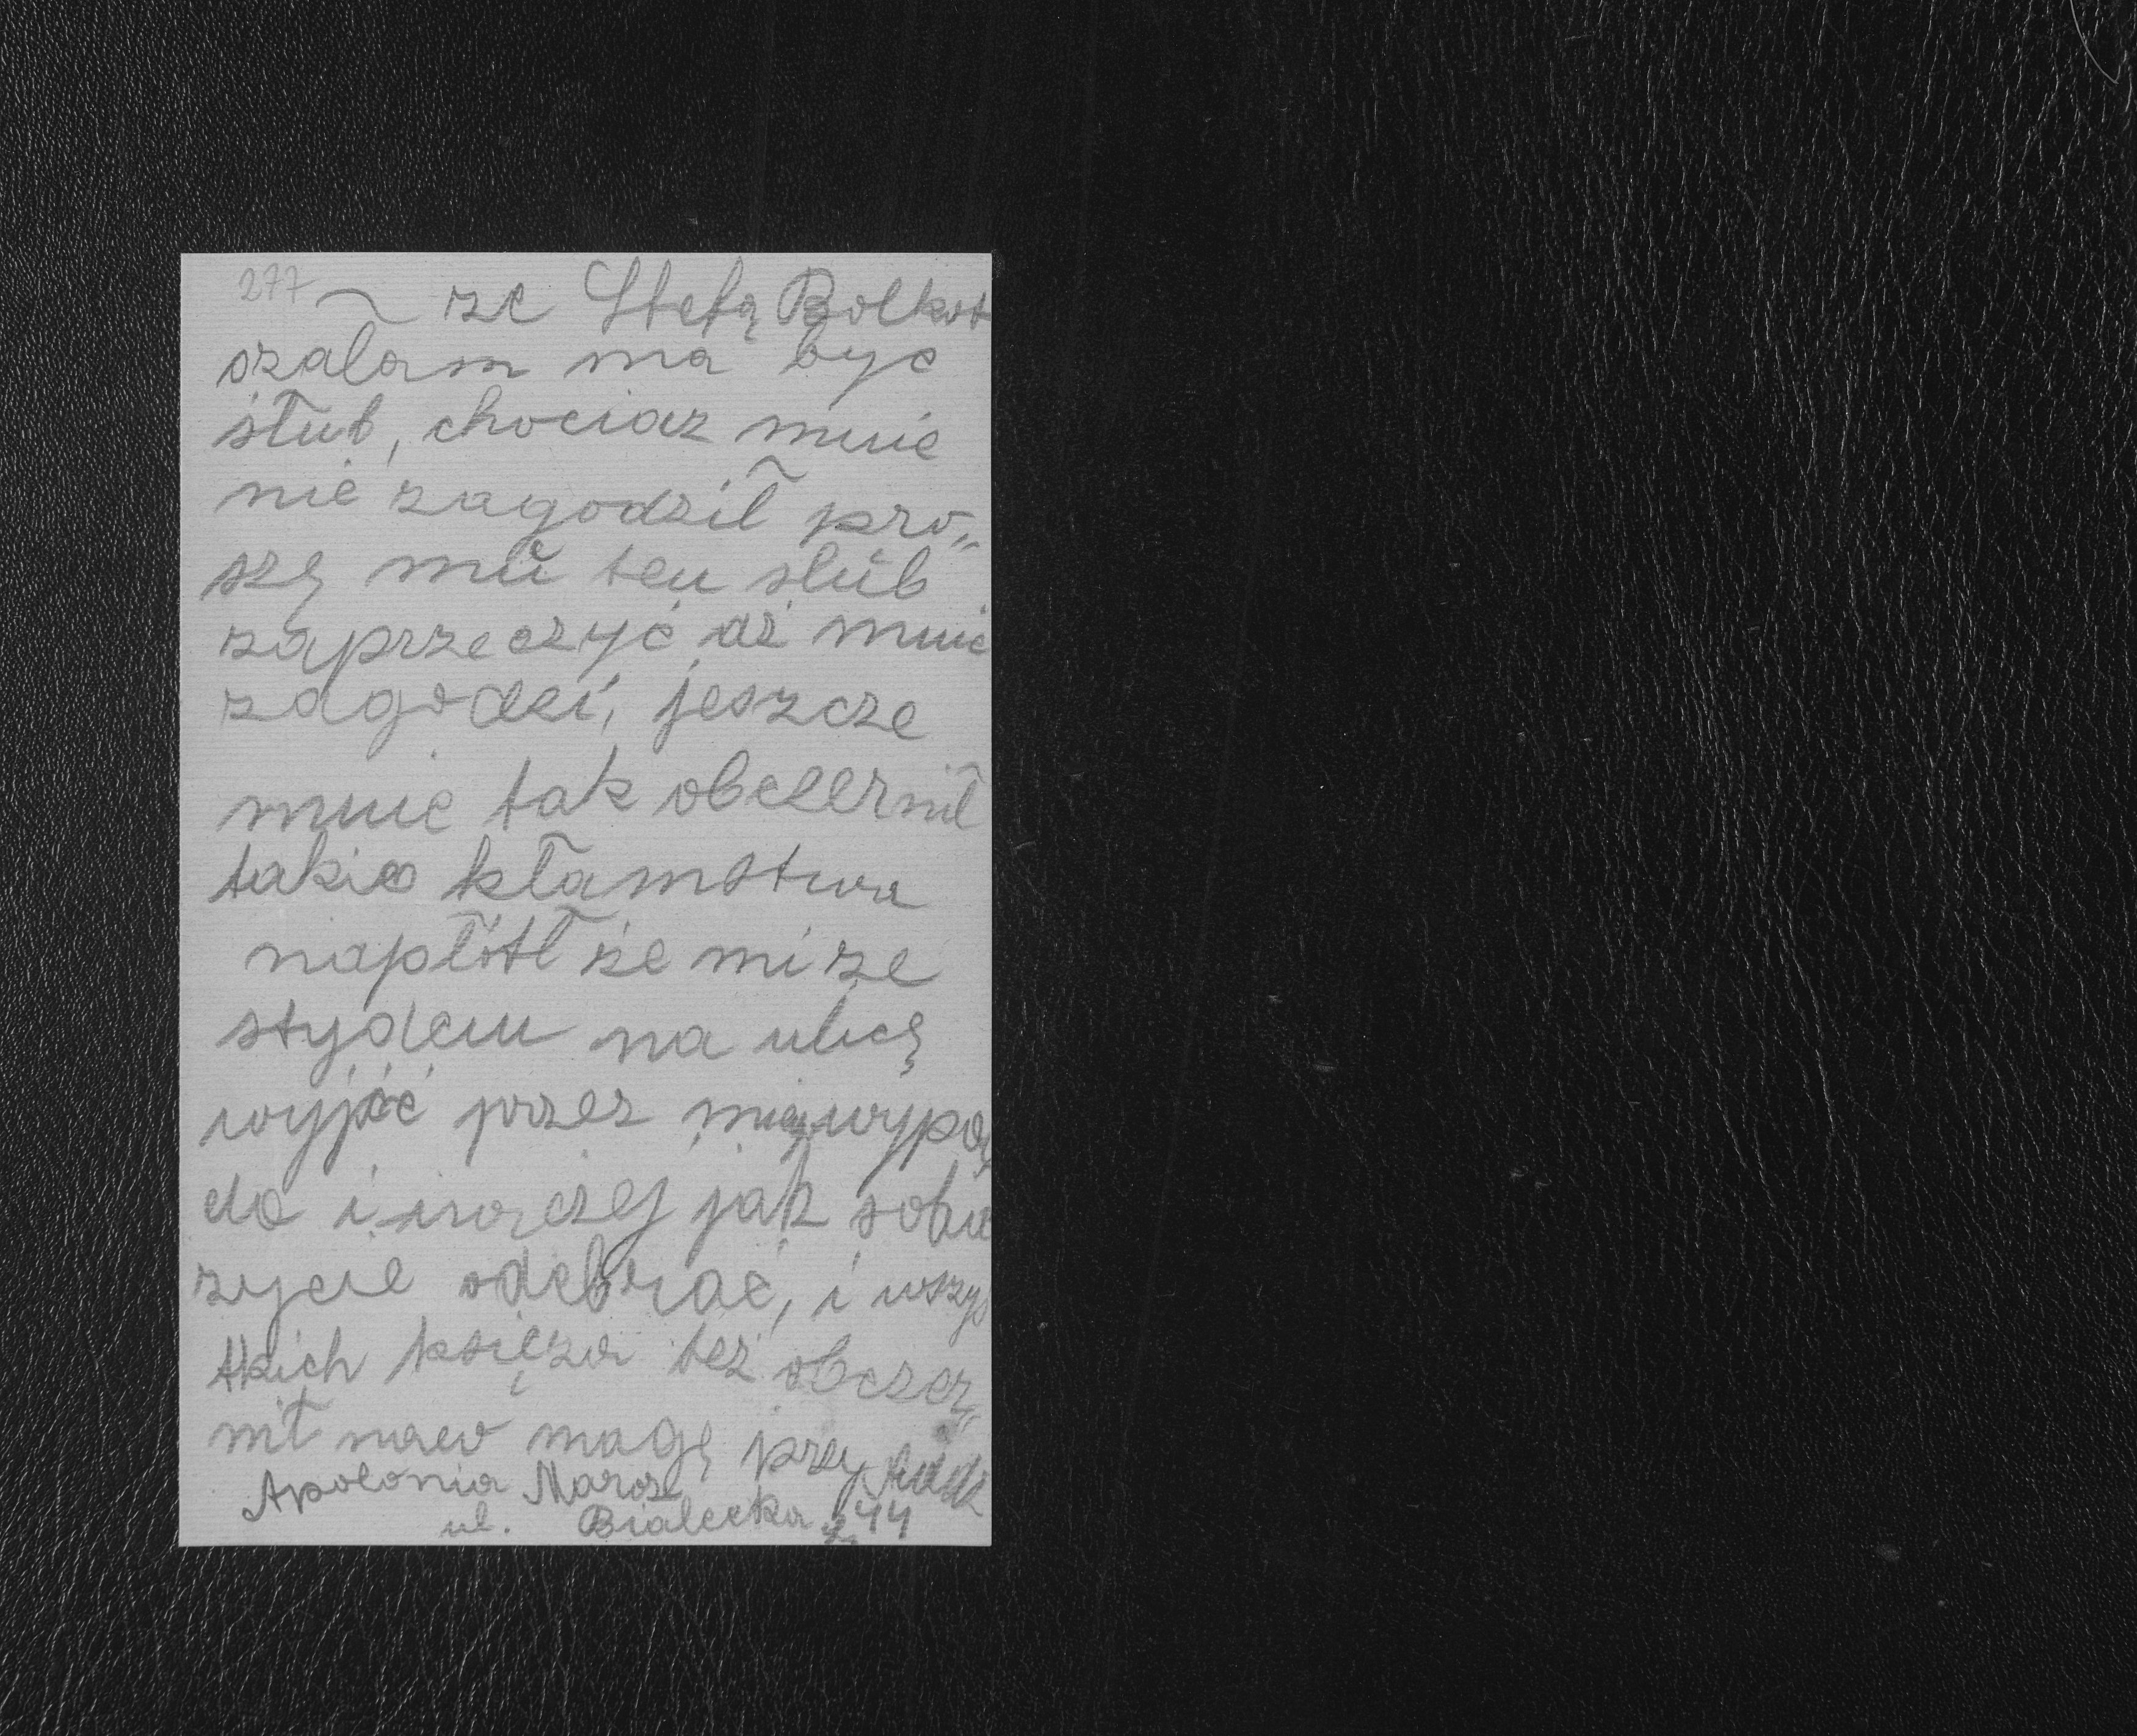 277 ~ ze Stefą Bolkot
szalam ma być
ślub, chociaz mnie
nie zagodził pro„
szę mu ten ślub
zaprzeczyć aż mnie
zagodzi, jeszcze
mnie tak obczernił
takie kłamstwa
napłótł że mi ze
stydem na ulicę
wyjść przez
da i inaczej jak sobie
zycie odebrać, i wszys
tkich księża też obczer„
nił mogę przy
Apolonia Maros
ul. Białecka 44